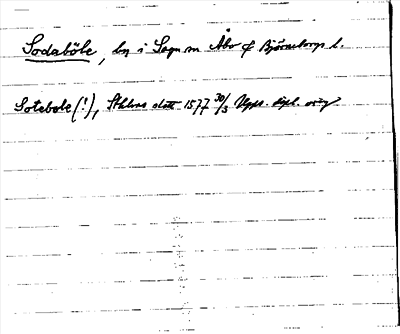 Sodaböle, by i Sagu sn Åbo & Björneborgs l.
Sotebole (!), Sthlm dat 1577 30/3 Uppl. dipl. orig.